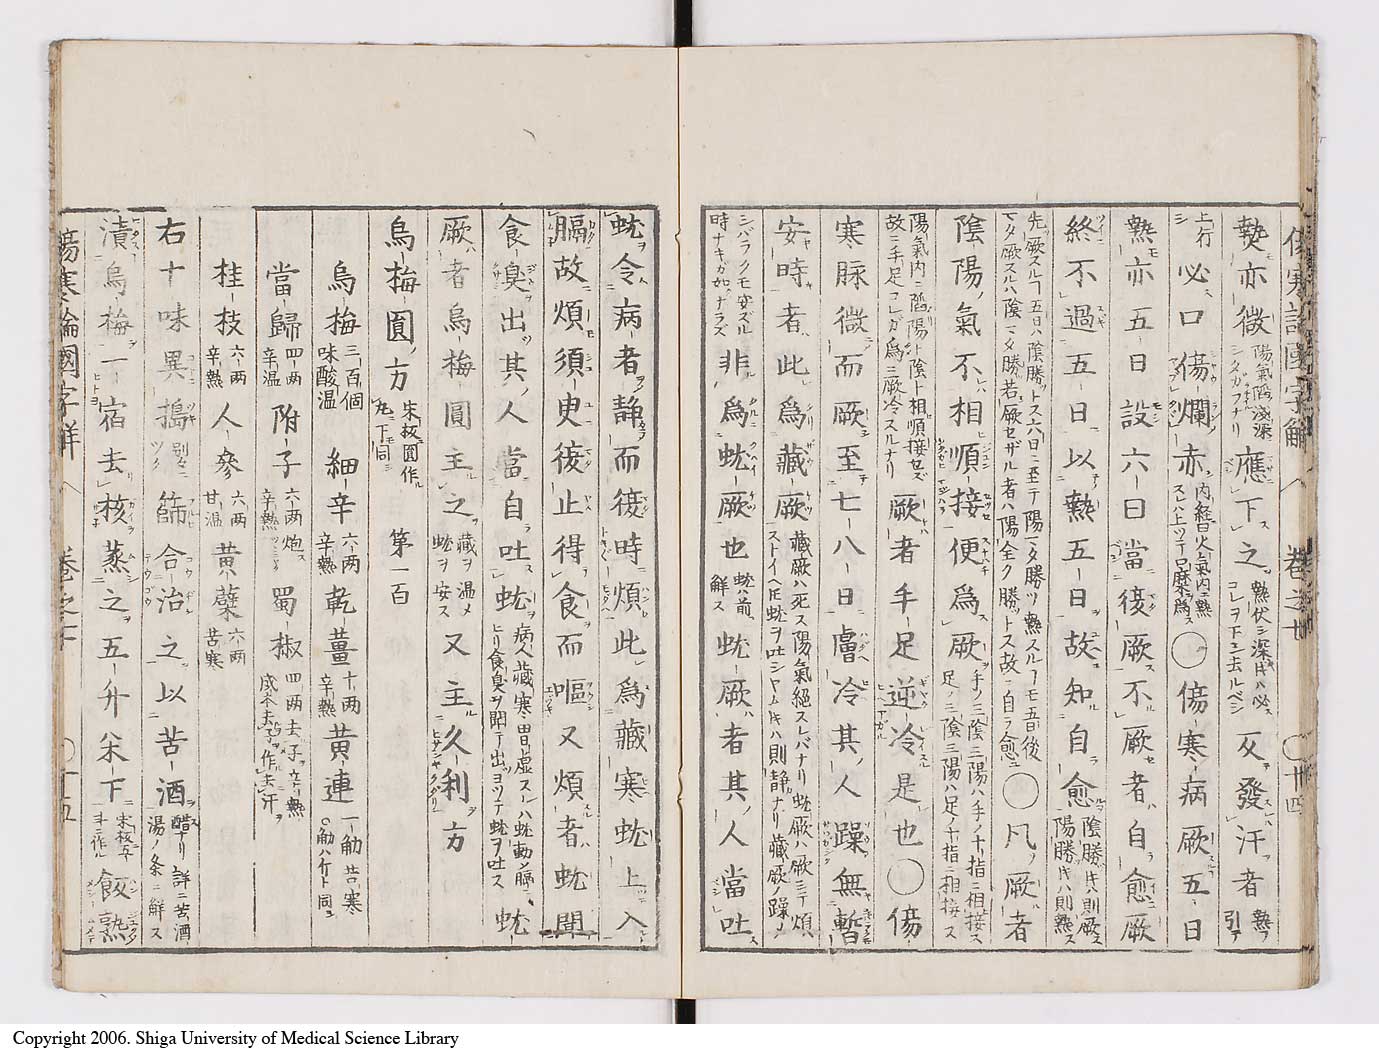 熱亦微陽氣陷淺深シタカフナリ應下之熱伏シ深キハ必スコレヲ下シ去ルベシ反發汗者熱ヲ引テ
上行シ必口傷爛赤内經曰火氣内ニ熱スレハ上ツテ口糜ヲ為ス○傷寒病厥五日
熱亦五日設六日當復厥不厥者自愈厥
終不過五日以熱五日故知自愈陰勝キハ則厥ス陽勝キハ則熱ス
先ッ厥スル五日ハ陰勝トス六日ニ至テ陽マタ勝ツ熱スルモ五日後マタ厥スルハ陰マタ勝若厥セザル者ハ陽全ク勝トス故ニ自ラ愈ユ○凡厥者
陰陽氣不相順接便為厥手ノ三陰三陽ハ手ノ十指ニ相接ス足ノ三陰三陽ハ足ノ十指ニ相接ス
陽氣内ニ陷リ陽ト陰ト相順接セズ故ニ手足コレガ為ニ厥冷スルナリ厥者手足逆冷是也○傷
寒脉微而厥至七八日膚冷其人躁無暫
安時者此為藏厥藏厥ハ死ス陽氣絶スレバナリ蚘厥ハ厥ニテ煩ストイヘ𪜈蚘ヲ吐シヤムキハ則静ナリ藏厥ノ躁ノ
シバラクモ安ズル時ナキガ如クナラズ非為蚘厥也蚘ハ前ニ觧ス蚘厥者其人當吐
蚘令病者静而復時煩此為藏寒蚘上入
膈故煩須臾復止得食而嘔又煩者蚘聞
食臭出其人當自吐蚘病人藏寒胃虚スルハ蚘動ノ膈ニヒリ食臭ヲ聞テ出ヨツテ蚘ヲ吐ス蚘
厥者烏梅圓主之藏ヲ温メ蚘ヲ安ス又主久利方
烏梅圓方宋板圓作丸下同第一百
烏梅三百個味酸温細辛六両辛熱乾薑十両辛熱黄連一觔苦寒○觔ハ斤ト同シ
當歸四両辛温附子六両炮辛熱蜀椒四両去子辛熱成本去子作去汗
桂枝六両辛熱人參六両甘温黄蘗六両苦寒
右十味異搗別々ニツク篩合治之以苦酒醋ナリ詳ニ苦酒湯ノ条ニ觧ス
漬烏梅一宿去核蒸之五升米下宋板五斗ニ作ル飯熟
傷寒論國字解 巻之 ○廿四
傷寒論國字解 巻之 ○廿五
Copyright 2006. Shiga University of Medical Science Library